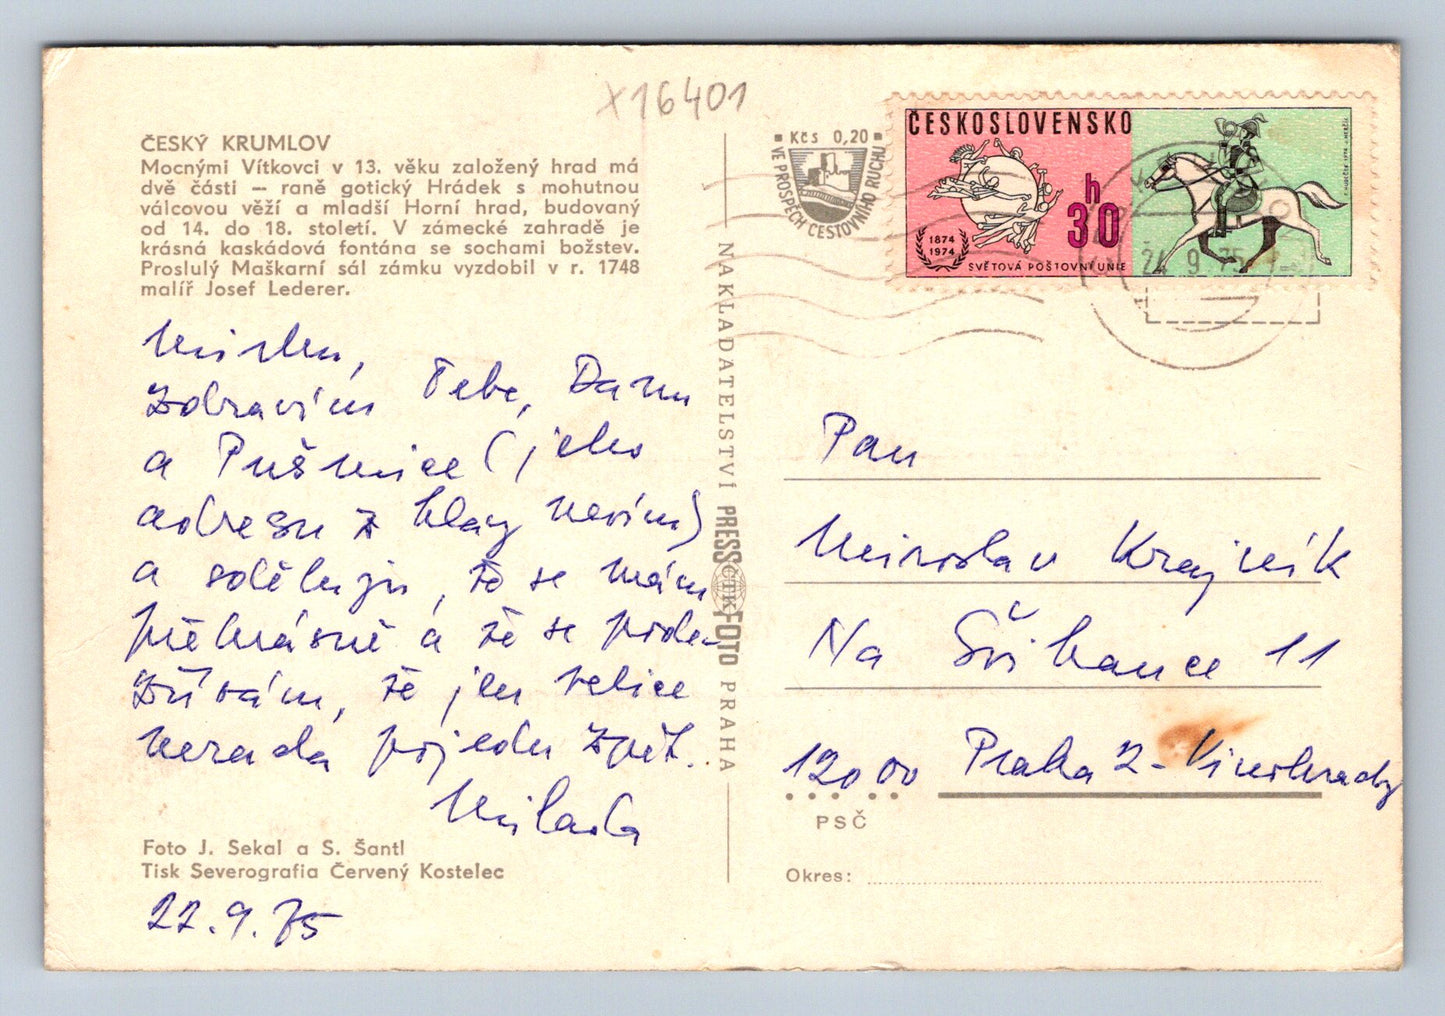 X16401
ČESKÝ KRUMLOV
Mocnými Vítkovci v 13. věku založený hrad má
dvě části — raně gotický Hrádek s mohutnou
válcovou věží a mladší Horní hrad, budovaný
od 14. do 18. století. V zámecké zahradě je
krásná kaskádová fontána se sochami božstev.
Proslulý Maškarní sál zámku vyzdobil v r. 1748
malíř Josef Lederer.
zdravím Tebe, Danu
a Pušmice (jeho
adresu z hlavy nevím)
a sděluji, že se mám
překrásně a že se
že jen velice
nerada pojedu zpět.
Milada
Foto J. Sekal a S. Šantl
Tisk Severografia Červený Kostelec
22.9.75
NAKLADATELSTVÍ PRESSFOTO PRAHA
ČTK
Kčs 0,20
VE PROSPĚCH CESTOVNÍHO RUCHU
ČESKOSLOVENSKO
h
30
1874
1974
SVĚTOVÁ POŠTOVNÍ UNIE
24 9 75
Pan
Miroslav Krajník
Na Švihance 11
12000 Praha 2 - Vinohrady
PSČ
Okres: